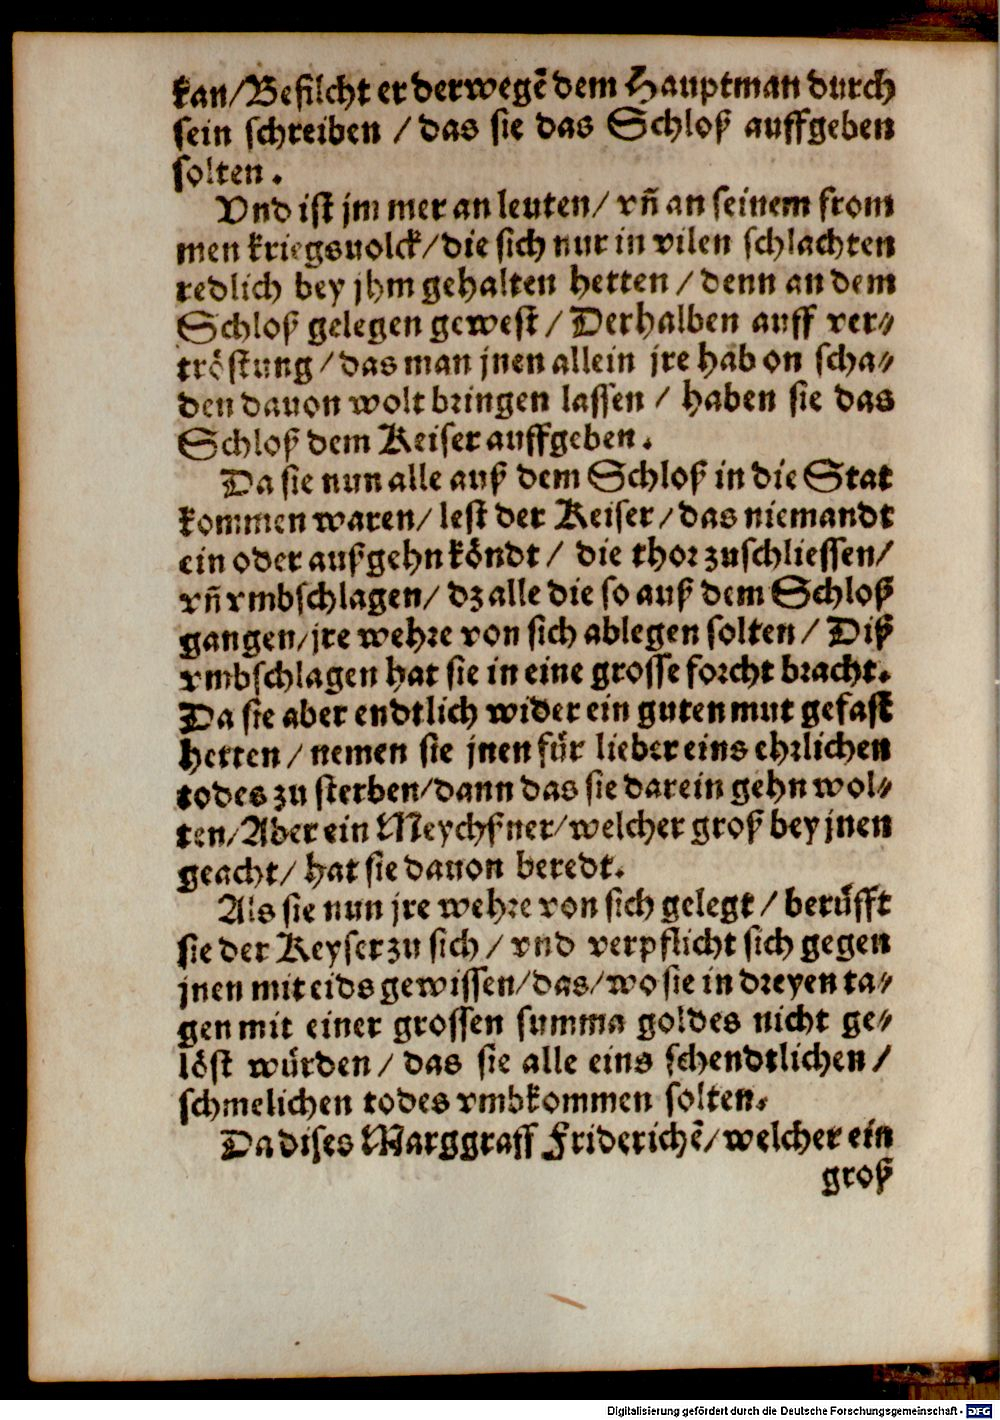 kan/Befilcht er derwegẽ dem Hauptman durch
sein schreiben / das sie das Schloß auffgeben
solten.
Vnd ist jm mer an leuten/ vñ an seinem from
men kriegsuolck/die sich nur in vilen schlachten
redlich bey jhm gehalten hetten / denn an dem
Schloß gelegen gewest / Derhalben auff ver⸗
tröstung /das man jnen allein jre hab on scha⸗
den dauon wolt bringen lassen / haben sie das
Schloß dem Keiser auffgeben.
Da sie nun alle auß dem Schloß in die Stat
kommen waren/ lest der Keiser/das niemandt
ein oder außgehn köndt / die thor zuschliessen/
vñ vmbschlagen/ dz alle die so auß dem Schloß
gangen/jre wehre von sich ablegen solten / Diß
vmbschlagen hat sie in eine grosse forcht bracht.
Da sie aber endtlich wider ein guten mut gefast
hetten / nemen sie jnen für lieber eins ehrlichen
todes zu sterben/dann das sie darein gehn wol⸗
ten/Aber ein Meychsner/welcher groß bey jnen
geacht/ hat sie dauon beredt.
Als sie nun jre wehre von sich gelegt / berüfft
sie der Keyser zu sich / vnd verpflicht sich gegen
jnen mit eids gewissen/das/wo sie in dreyen ta⸗
gen mit einer grossen summa goldes nicht ge⸗
löst würden / das sie alle eins schendtlichen /
schmelichen todes vmbkommen solten.
Da dises Marggraff Friderichẽ/welcher ein
groß
Digitalisierung gefördert durch die Deutsche Forschungsgemeinschaft - DFG